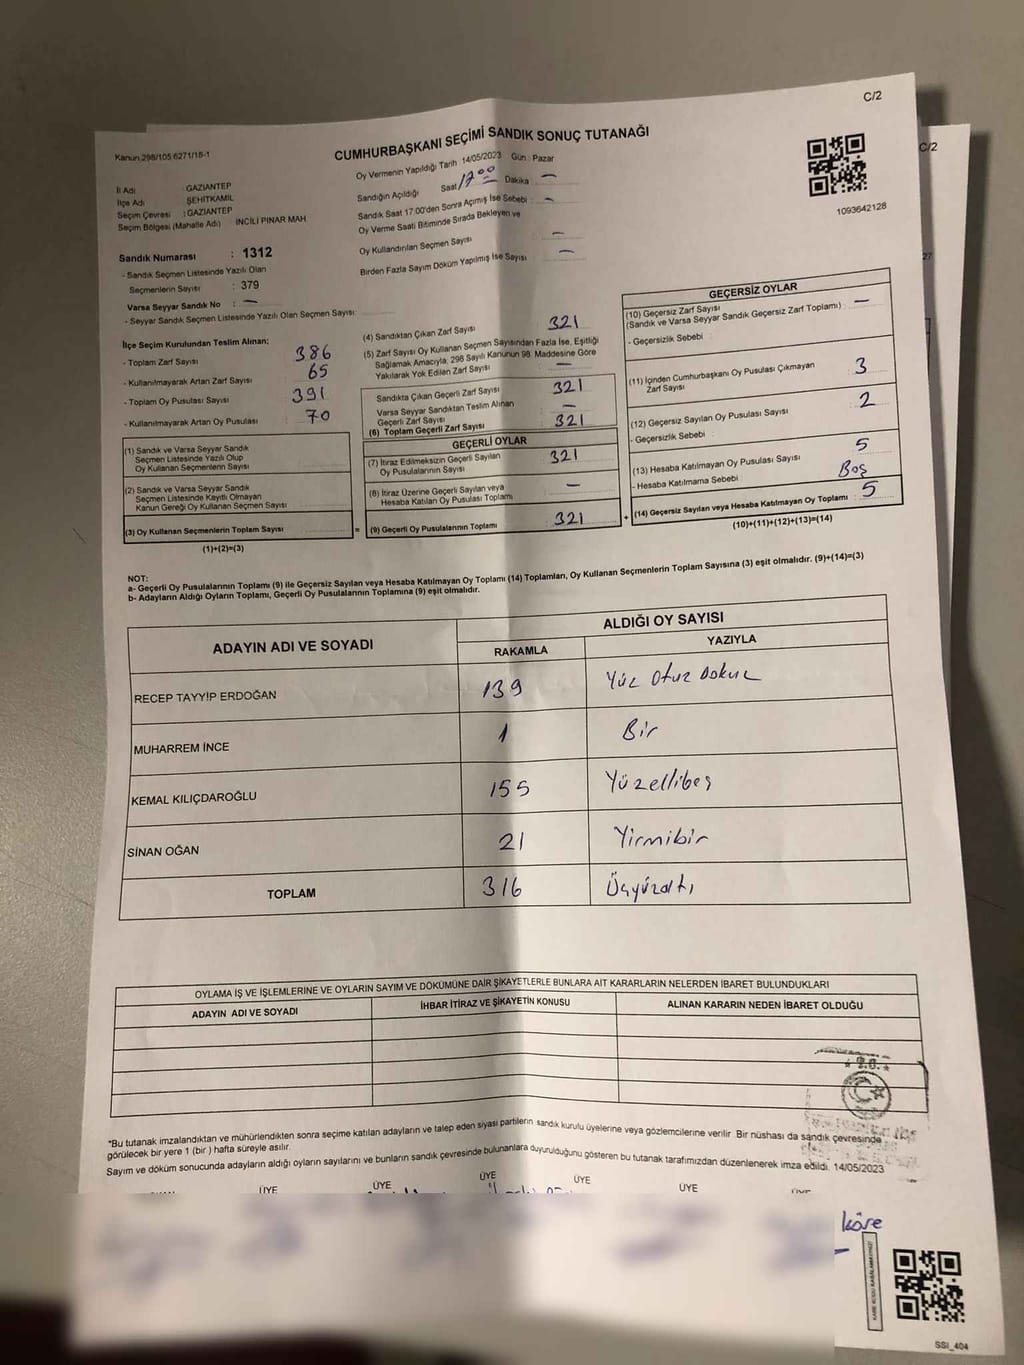 C/2
C/2
Kanun:298/105,6271/18-1
CUMHURBAŞKANI SEÇİMİ SANDIK SONUÇ TUTANAĞI
İl Adı : GAZIANTEP
İlçe Adı : ŞEHİTKAMİL
Seçim Çevresi : GAZIANTEP
Seçim Bölgesi (Mahalle Adı) : INCİLİ PINAR MAH
Oy Vermenin Yapıldığı Tarih 14/05/2023 Gün : Pazar
Sandığın Açıldığı Saat 17:00 Dakika —
Sandık Saat 17:00'den Sonra Açımış İse Sebebi —
Oy Verme Saati Bitiminde Sırada Bekleyen ve
Oy Kullandırılan Seçmen Sayısı —
Birden Fazla Sayım Döküm Yapılmış İse Sayısı —
1093642128
27
Sandık Numarası : 1312
- Sandık Seçmen Listesinde Yazılı Olan
Seçmenlerin Sayısı : 379
Varsa Seyyar Sandık No : —
- Seyyar Sandık Seçmen Listesinde Yazılı Olan Seçmen Sayısı:
İlçe Seçim Kurulundan Teslim Alınan;
- Toplam Zarf Sayısı 386
- Kullanılmayarak Artan Zarf Sayısı 65
- Toplam Oy Pusulası Sayısı 391
- Kullanılmayarak Artan Oy Pusulası 70
(1) Sandık ve Varsa Seyyar Sandık
Seçmen Listesinde Yazılı Olup
Oy Kullanan Seçmenlerin Sayısı
(2) Sandık ve Varsa Seyyar Sandık
Seçmen Listesinde Kayıtlı Olmayan
Kanun Gereği Oy Kullanan Seçmen Sayısı
(3) Oy Kullanan Seçmenlerin Toplam Sayısı
(1)+(2)=(3)
(4) Sandıktan Çıkan Zarf Sayısı 321
(5) Zarf Sayısı Oy Kullanan Seçmen Sayısından Fazla İse, Eşitliği
Sağlamak Amacıyla, 298 Sayılı Kanunun 98. Maddesine Göre
Yakılarak Yok Edilen Zarf Sayısı —
Sandıkta Çıkan Geçerli Zarf Sayısı 321
Varsa Seyyar Sandıktan Teslim Alınan
Geçerli Zarf Sayısı —
(6) Toplam Geçerli Zarf Sayısı 321
GEÇERLİ OYLAR
(7) İtiraz Edilmeksizin Geçerli Sayılan
Oy Pusulalarının Sayısı 321
(8) İtiraz Üzerine Geçerli Sayılan veya
Hesaba Katılan Oy Pusulası Toplamı —
= (9) Geçerli Oy Pusulalarının Toplamı 321 +
GEÇERSİZ OYLAR
(10) Geçersiz Zarf Sayısı
(Sandık ve Varsa Seyyar Sandık Geçersiz Zarf Toplamı) —
- Geçersizlik Sebebi :
(11) İçinden Cumhurbaşkanı Oy Pusulası Çıkmayan
Zarf Sayısı 3
(12) Geçersiz Sayılan Oy Pusulası Sayısı 2
- Geçersizlik Sebebi :
(13) Hesaba Katılmayan Oy Pusulası Sayısı 5
- Hesaba Katılmama Sebebi Boş
(14) Geçersiz Sayılan veya Hesaba Katılmayan Oy Toplamı : 5
(10)+(11)+(12)+(13)=(14)
NOT:
a- Geçerli Oy Pusulalarının Toplamı (9) ile Geçersiz Sayılan veya Hesaba Katılmayan Oy Toplamı (14) Toplamları, Oy Kullanan Seçmenlerin Toplam Sayısına (3) eşit olmalıdır. (9)+(14)=(3)
b- Adayların Aldığı Oyların Toplamı, Geçerli Oy Pusulalarının Toplamına (9) eşit olmalıdır.
ADAYIN ADI VE SOYADI
ALDIĞI OY SAYISI
RAKAMLA YAZIYLA
RECEP TAYYİP ERDOĞAN 139 Yüz Otuz Dokuz
MUHARREM İNCE 1 Bir
KEMAL KILIÇDAROĞLU 155 Yüzellibeş
SİNAN OĞAN 21 Yirmibir
TOPLAM 316 Üçyüzaltı
OYLAMA İŞ VE İŞLEMLERINE VE OYLARIN SAYIM VE DÖKÜMÜNE DAİR ŞİKAYETLERLE BUNLARA AİT KARARLARIN NELERDEN İBARET BULUNDUKLARI
ADAYIN ADI VE SOYADI İHBAR İTİRAZ VE ŞİKAYETİN KONUSU ALINAN KARARIN NEDEN İBARET OLDUĞU
*Bu tutanak imzalandıktan ve mühürlendikten sonra seçime katılan adayların ve talep eden siyasi partilerin sandık kurulu üyelerine veya gözlemcilerine verilir. Bir nüshası da sandık çevresinde
görülecek bir yere 1 (bir) hafta süreyle asılır.
Sayım ve döküm sonucunda adayların aldığı oyların sayılarını ve bunların sandık çevresinde bulunanlara duyurulduğunu gösteren bu tutanak tarafımızdan düzenlenerek imza edildi. 14/05/2023
ÜYE ÜYE ÜYE ÜYE ÜYE
köse
SSI_404